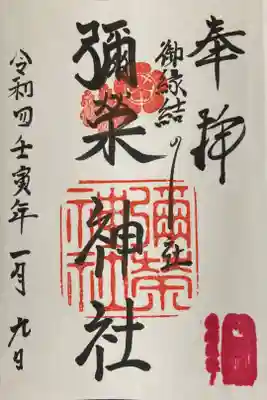 奉拝
御縁結の社
彌榮神社
彌榮
神社
令和四壬寅年一月九日